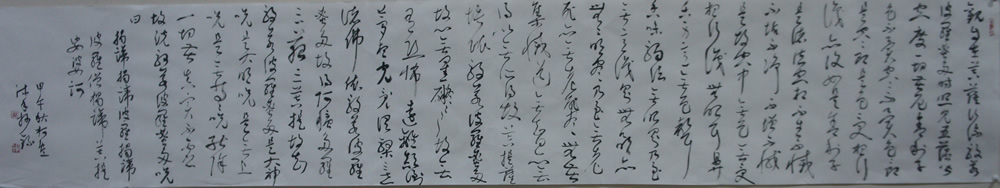 觀自在菩薩行深般若
波羅蜜多時照見五蘊皆
空度一切苦厄舍利子
色不異空空不異色色
即是空空即是色受想行
識亦復如是舍利子
是諸法空相不生不滅
不垢不淨不增不減
是故空中無色無受
想行識無眼耳鼻
舌身意無色聲
香味觸法無眼界乃至
無意識界無無明亦
無無明盡乃至無老
死亦無老死盡無苦
集滅道無智亦無
得以無所得故菩提薩
埵依般若波羅蜜多
故心無罣礙無罣礙故無
有恐怖遠離顛倒
夢想究竟涅槃三世
諸佛依般若波羅
蜜多故得阿耨多羅
三藐三菩提故知
般若波羅蜜多是大神
咒是大明咒是無上
咒是無等等咒能除
一切苦真實不虛
故說般若波羅蜜多咒
曰
揭諦揭諦波羅揭諦
波羅僧揭諦菩提
娑婆訶
甲午秋